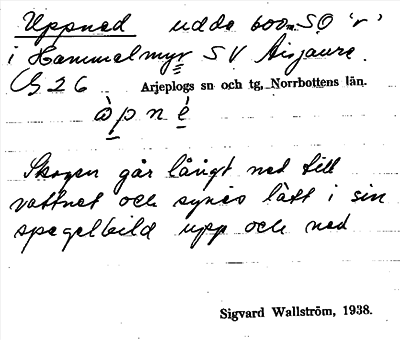 Uppned udde 600m SO 'r'
i Hammelmyr SV Aisjaure.
G 26 Arjeplogs sn och tg, Norrbottens län.
àpné
Skogen går långt ned till
vattnet och synes lätt i sin
spegelbild upp och ned
Sigvard Wallström, 1938.